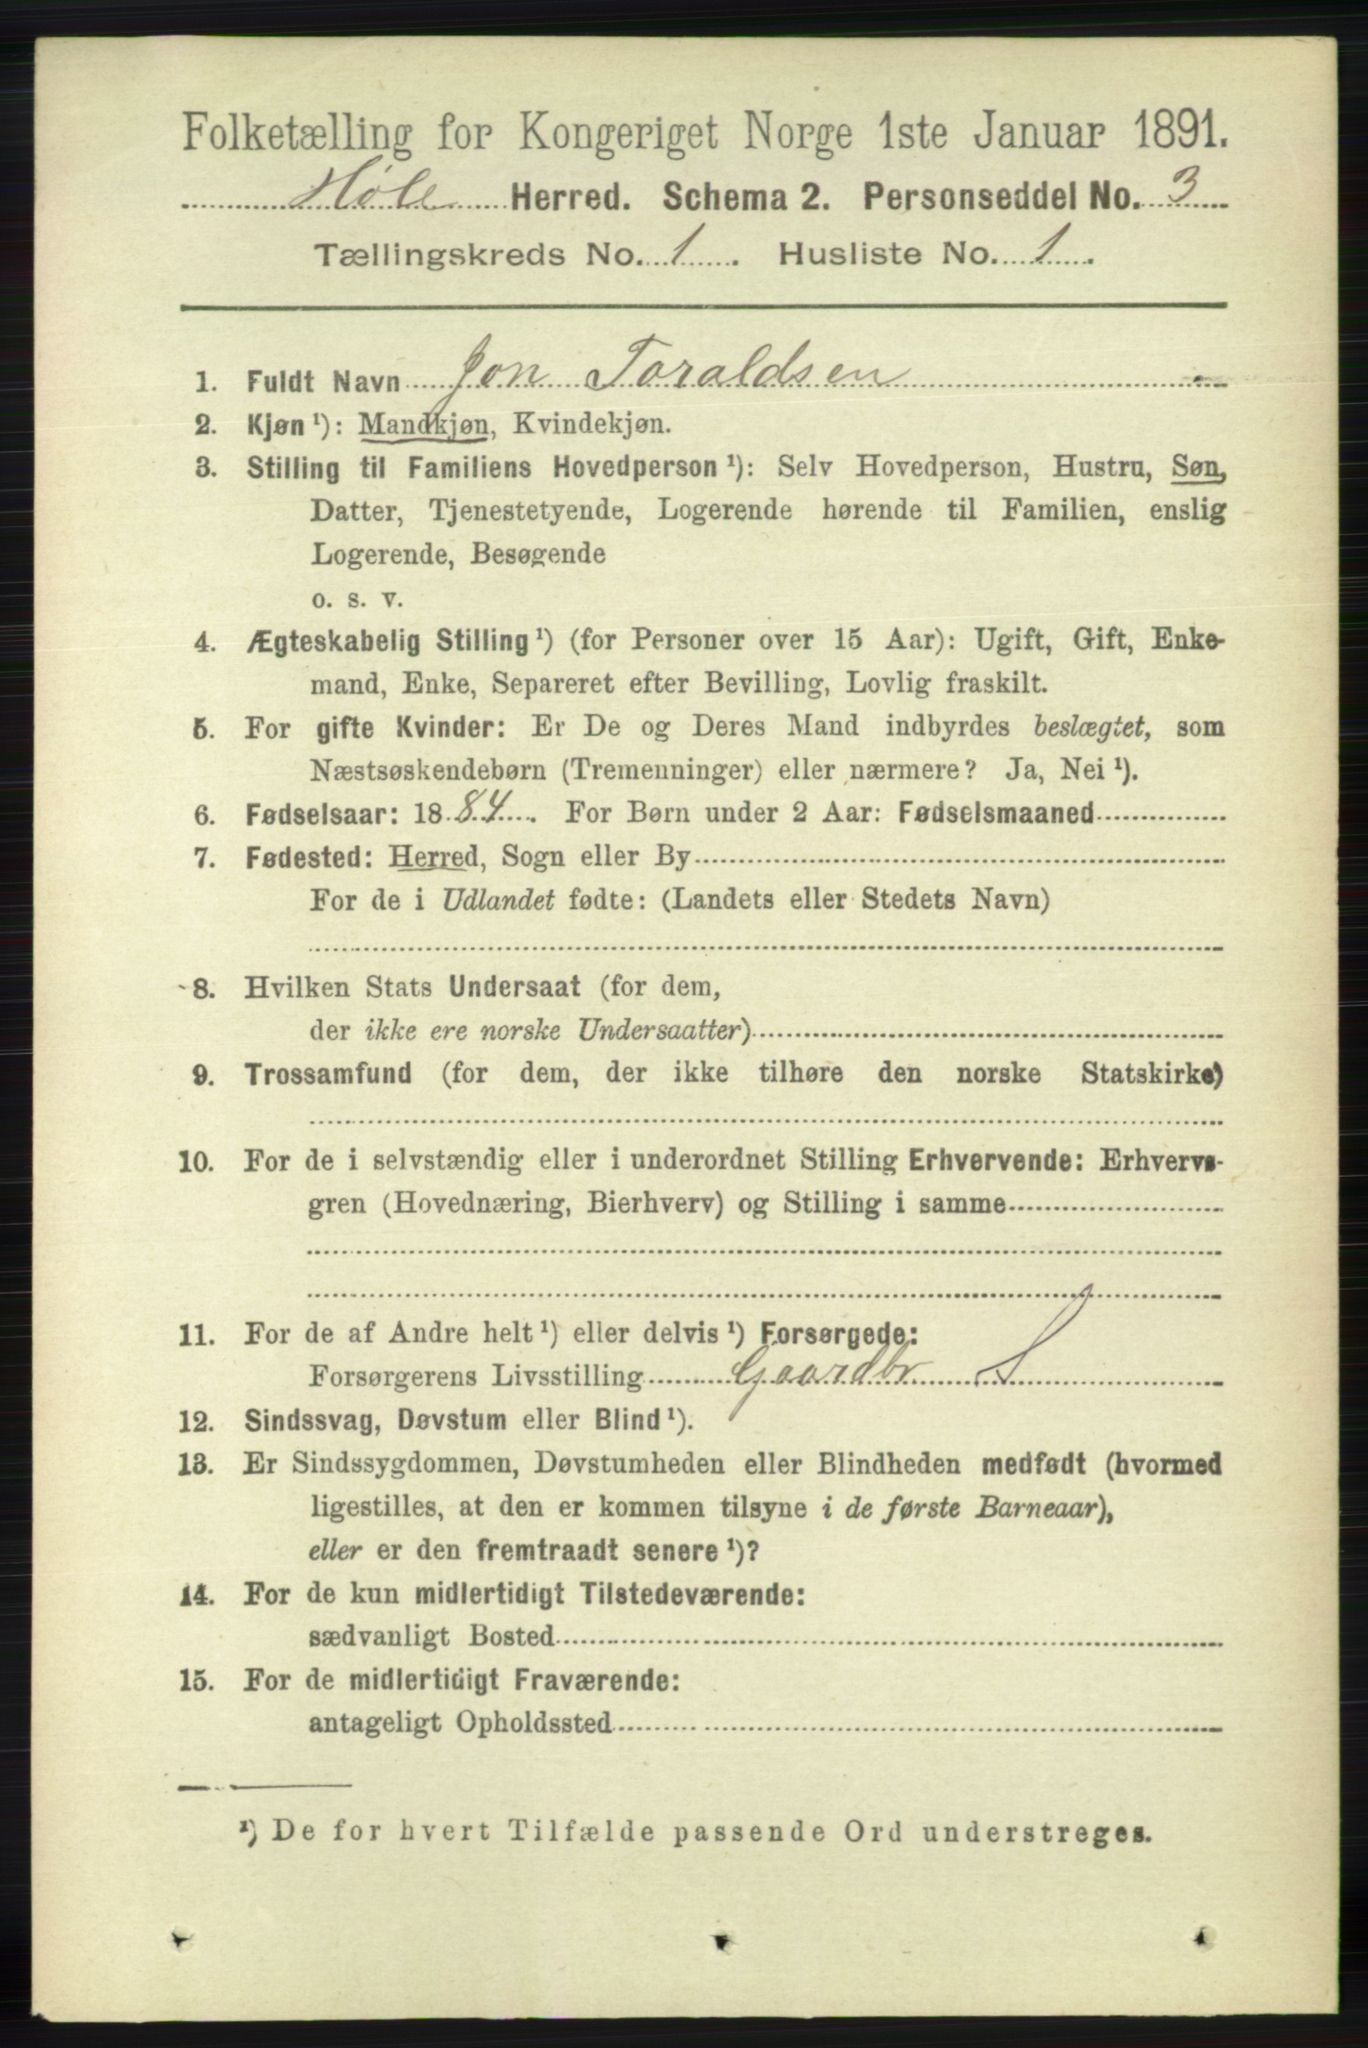 Folketælling for Kongeriget Norge 1ste Januar 1891.
Høle Herred. Schema 2. Personseddel No. 3
Tællingskreds No. 1. Husliste No. 1.
1. Fuldt Navn Jon Toraldsen
2. Kjøn ¹): Mandkjøn, Kvindekjøn.
3. Stilling til Familiens Hovedperson ¹): Selv Hovedperson, Hustru, Søn,
Datter, Tjenestetyende, Logerende hørende til Familien, enslig
Logerende, Besøgende
o. s. v.
4. Ægteskabelig Stilling ¹) (for Personer over 15 Aar): Ugift, Gift, Enke-
mand, Enke, Separeret efter Bevilling, Lovlig fraskilt.
5. For gifte Kvinder: Er De og Deres Mand indbyrdes beslægtet, som
Næstsøskendebørn (Tremenninger) eller nærmere? Ja, Nei ¹).
6. Fødselsaar: 1884. For Børn under 2 Aar: Fødselsmaaned
7. Fødested: Herred, Sogn eller By
For de i Udlandet fødte: (Landets eller Stedets Navn)
8. Hvilken Stats Undersaat (for dem,
der ikke ere norske Undersaatter)
9. Trossamfund (for dem, der ikke tilhøre den norske Statskirke)
10. For de i selvstændig eller i underordnet Stilling Erhvervende: Erhvervs-
gren (Hovednæring, Bierhverv) og Stilling i samme
11. For de af Andre helt ¹) eller delvis ¹) Forsørgede:
Forsørgerens Livsstilling Gaardbr S
12. Sindssvag, Døvstum eller Blind ¹).
13. Er Sindssygdommen, Døvstumheden eller Blindheden medfødt (hvormed
ligestilles, at den er kommen tilsyne i de første Barneaar),
eller er den fremtraadt senere ¹)?
14. For de kun midlertidigt Tilstedeværende:
sædvanligt Bosted
15. For de midlertidigt Fraværende:
antageligt Opholdssted
¹) De for hvert Tilfælde passende Ord understreges.